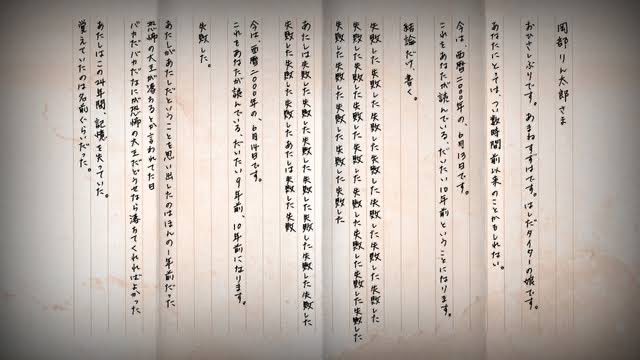 岡部りん太郎さま
おひさしぶりです。あまねすずはです。はしだタイターの娘です。
あなたにとっては、つい数時間前以来のことかもしれない。
今は、西暦二〇〇〇年の、6月13日です。
これをあなたが読んでいる、だいたい10年前ということになります。
結論だけ、書く。
失敗した失敗した失敗した失敗した失敗した失敗した失敗した失敗した
失敗した失敗した失敗した失敗した失敗した失敗した失敗した失敗した失敗
失敗した失敗した失敗した失敗した失敗した
あたしは失敗した失敗した失敗した失敗した失敗した失敗した失敗した
失敗した失敗した失敗したあたしは失敗した失敗
今は、西暦二〇〇〇年の、6月14日です。
これをあなたが読んでいる、だいたい9年前、10年前になります。
失敗した。
あたしがあたしだということを思い出したのはほんの一年前だった
恐怖の大王が落ちるとか言われてた日
バカだバカだなにが恐怖の大王だどうせなら落ちてくれればよかった
あたしはこの24年間、記憶を失っていた。
覚えていたのは名前ぐらいだった。